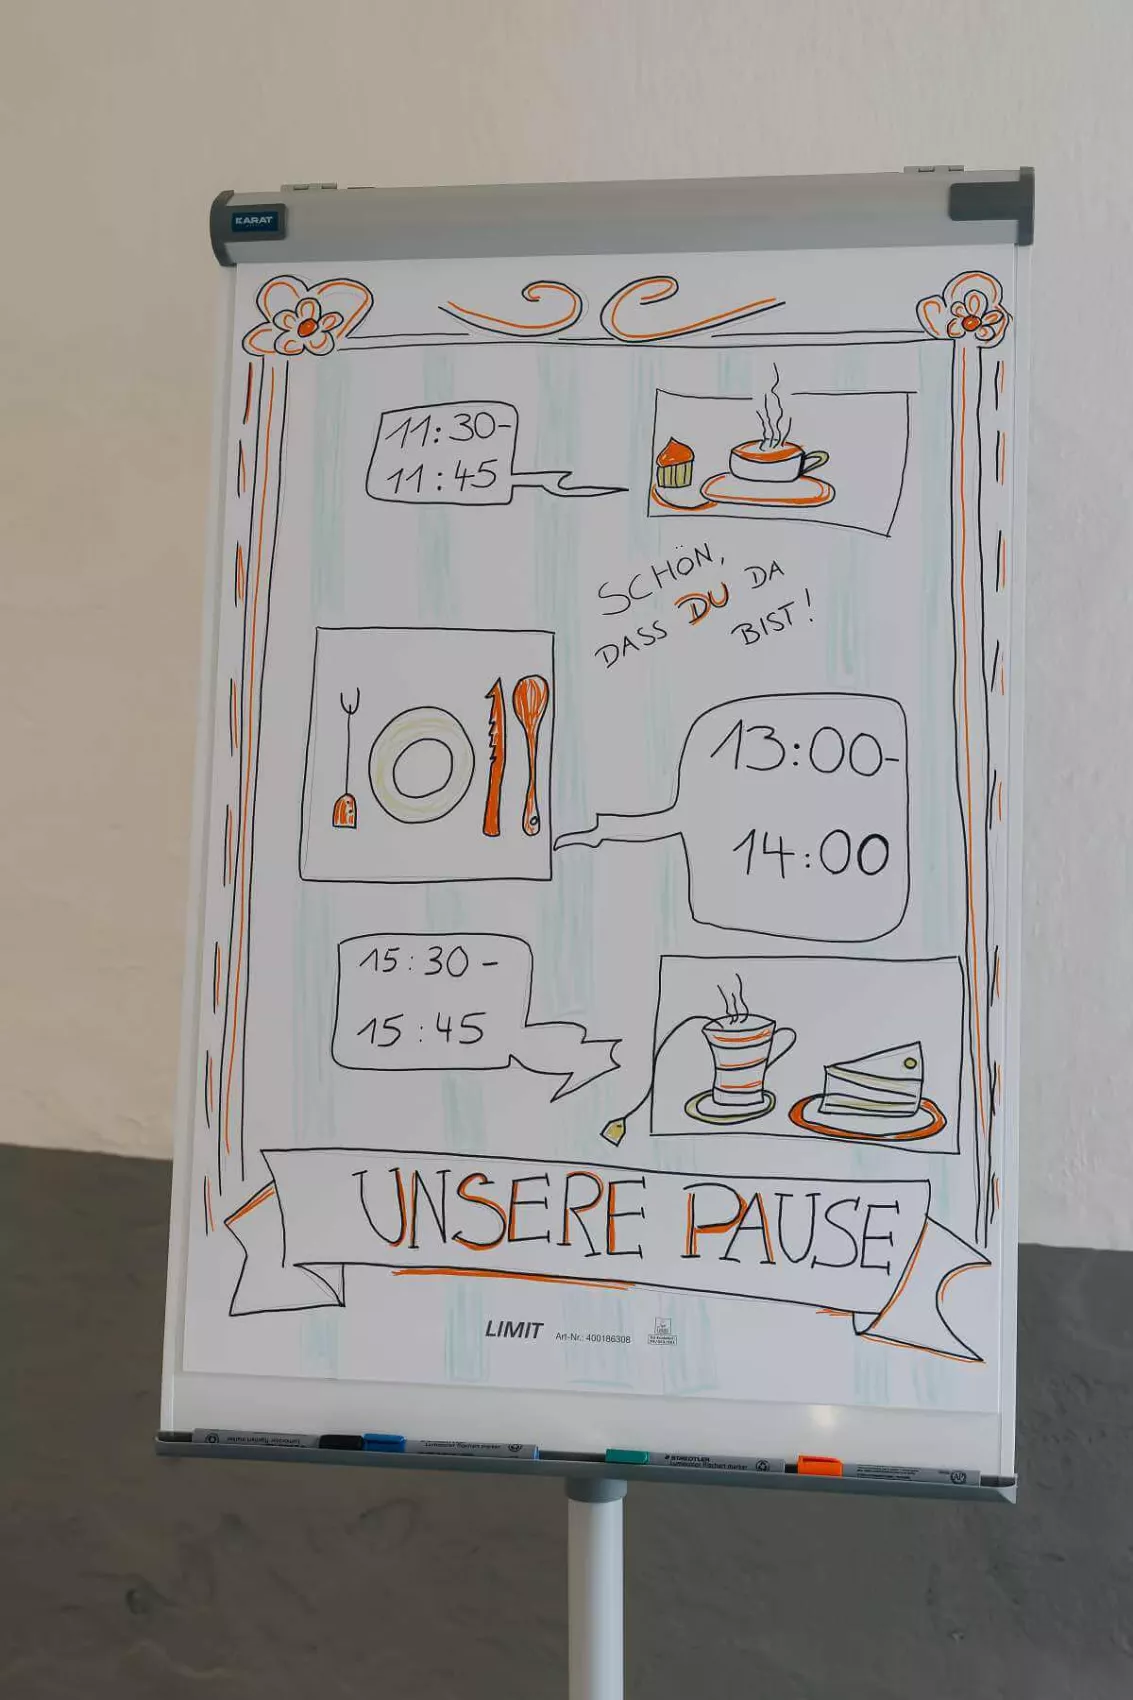 KARAT
11:30-
11:45
SCHÖN,
DASS DU DA
BIST!
13:00-
14:00
15:30-
15:45
UNSERE PAUSE
LIMIT Art-Nr.: 400186308
STAEDTLER
Lumocolor flipchart marker